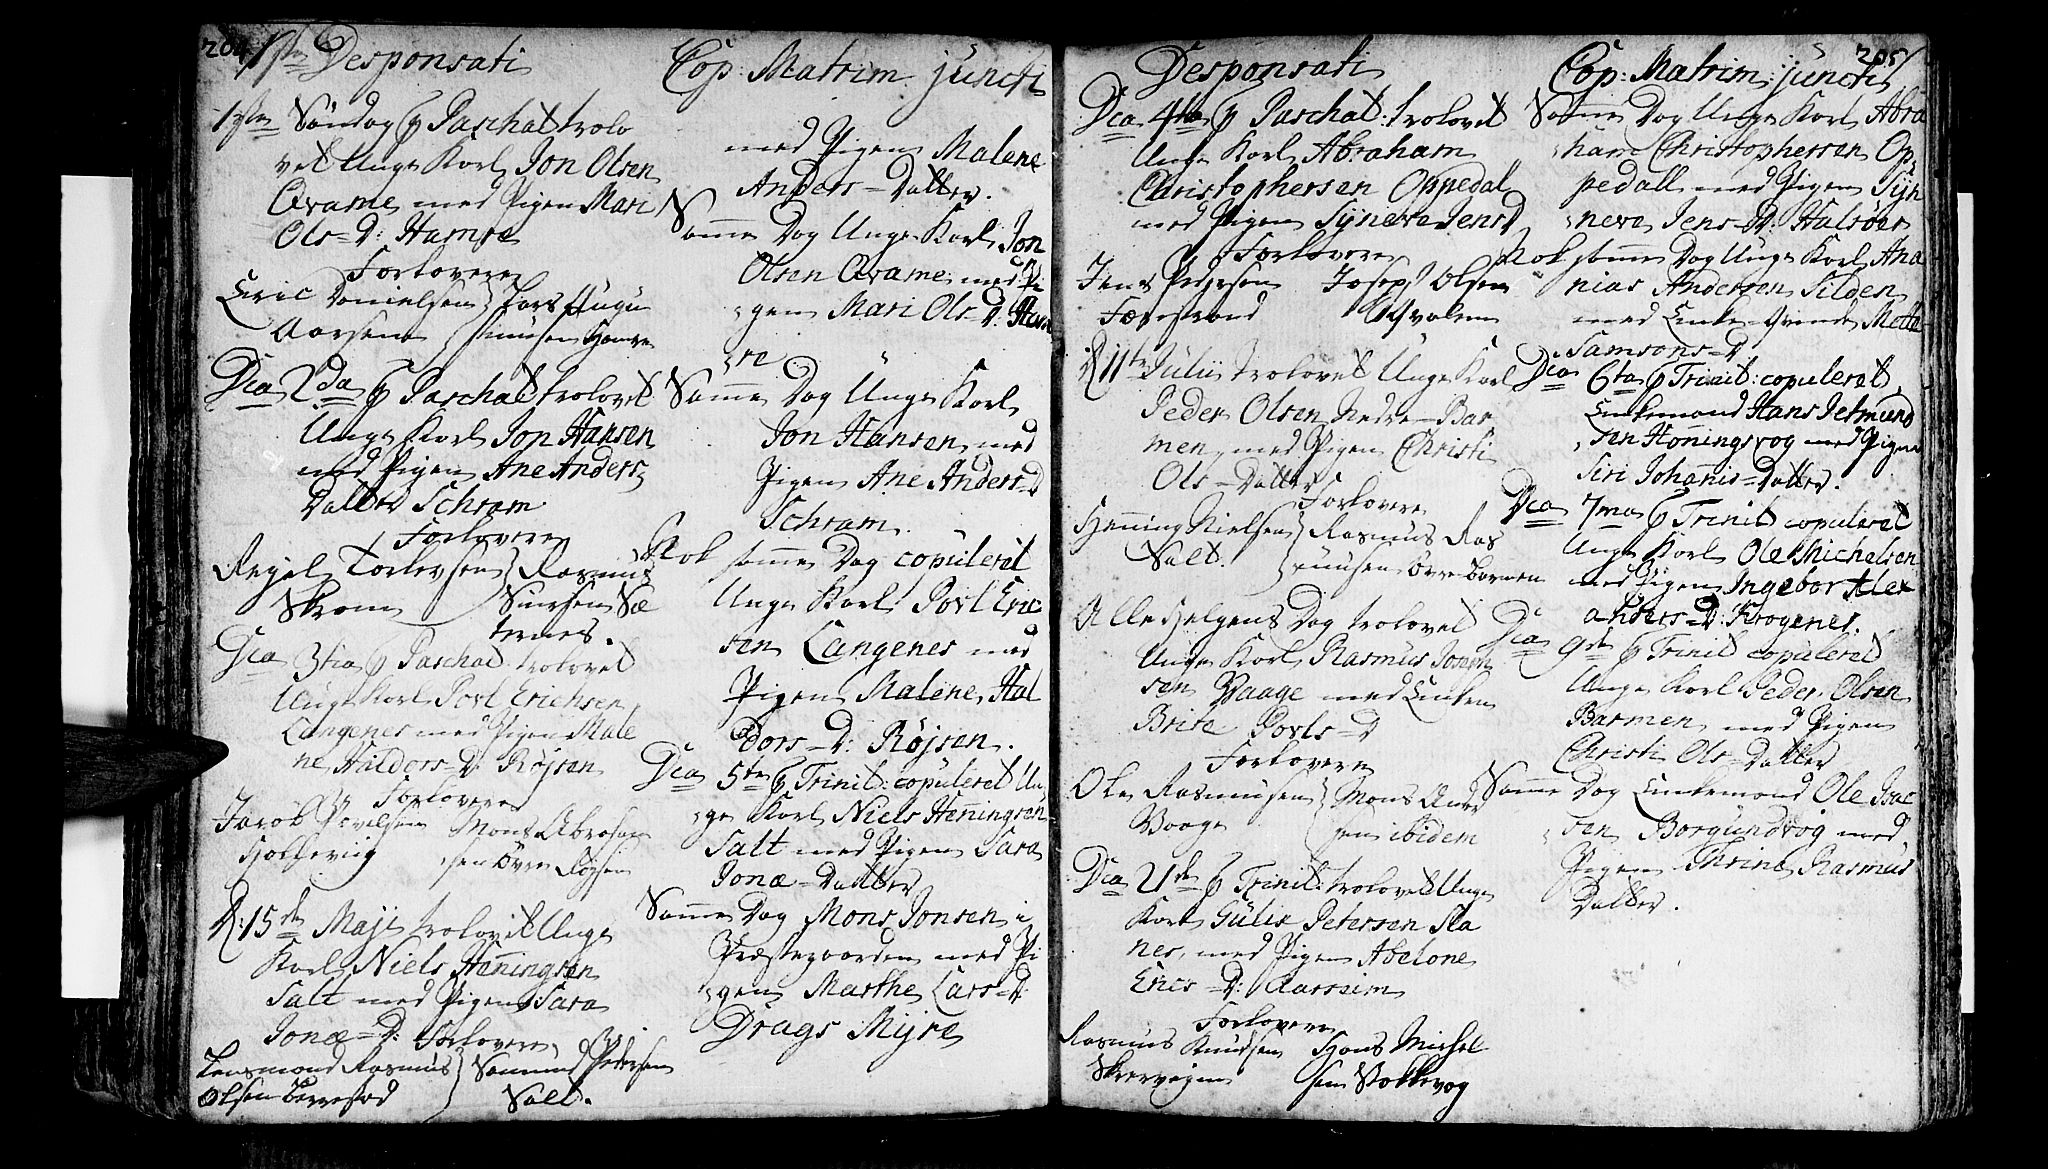 204
Desponsati
1ste Søndag p Paschat trolo
vet Unge Karl Jon Olsen
Qvame med Pigen Mari
Ols-D: Hamre
Forlovere
Eric Danielsen } Lars
Aarsem } Knudsen Hamre
Dca 2da p Paschat trolovet
Unge Karl Jon Hansen
med Pigen Ane Anders
Datter Schram
Forlovere
Torlevsen } Rasmus
Skram Siversen Sæ
ternes.
Dca 3tia p Paschat: trolovet
Unge Karl Povl Erichsen
Langenes med Pigen Male
ne Haldors-D: Røjsen
Forlovere
Jacob Povelsen Mons Abraham
sen Øvre Røysen
D: 15de Maji trolovet Unge
Karl Niels Henningsen
Salt med Pigen Sara
Jonæ-D: Forlovere
Lensmand Rasmus } Samund Pedersen
Olsen Berrestad } Salt.
Cop: Matrim juncti
med Pigen Malene
Anders-Datter.
Samme Dag Unge Karl Jon
Olsen Qvame med Pi
gen Mari Ols-D: Ham
re
Samme Dag Unge Karl
Jon Hansen med
Pigen Ane Anders-D
Schram.
Nok samme Dag copuleret
Unge Karl Povl Eric
sen Langenes med
Pigen Malene Hal
dors-D: Røjsen.
Dca 5te p Trinit: copuleret Un
ge Karl Niels Henningsen
Salt med Pigen Sara
Jonæ-Datter
Samme Dag Mons Jonsen i
Præstegaarden med Pi
gen Marthe Lars-D:
Drags Myre
205
Desponsati
Dca 4ta p Paschat: trolovet
Unge Karl Abraham
Christophersen Oppedal
med Pigen Synneve Jens D
Forlovere
Jens Pedersen Joseph Olsen
Færestrand Qvalem
D: 11te Julii trolovet Unge Karl
Peder Olsen Nedre-Bar
men, med Pigen Christi
Ols-Datter
Forlovere
Henning Nielsen } Rasmus Ras
Salt. } musen Øvre Barmen
Alle Helgens Dag trolovet
Unge Karl Rasmus Joseph
sen Vaage med Enken
Brite Povls-D
Forlovere
Ole Rasmusen } Mons Ander
Vaage sen ibidem
Dca 21de p Trinit: trolovet Unge
Karl Gulix Petersen Sta
nes, med Pigen Abelone
Erics-D: Aarseim
Forlovere
Rasmus Knudsen Hans Michel
sen Stokkevog
Cop: Matrim: juncti
Samme Dag Unge Karl Abra
ham Christophersen Op
pedall med Pigen Syn
neve Jens-D: Halsøer
Nok samme Dag Unge Karl Ana
nias Andersen Silden
med Enke Qvinde Mette
Samsons-D.
Dca 6ta p Trinit: copuleret
Enkemand Hans Jetmund
sen Honningsvog med Pigen
Siri Johannis-Datter.
Dca 7ma p Trinit copuleret
Unge Karl Ole Michelsen
med Pigen Ingebor Alex
anders-D: Krogenes.
Dca 9de p Trinit copuleret
Unge Karl Peder Olsen
Barmen med Pigen
Christi Ols-Datter
Samme Dag Enkemand Ole Isac
sen Borgundvog med
Pigen Thrine Rasmus
Datter.